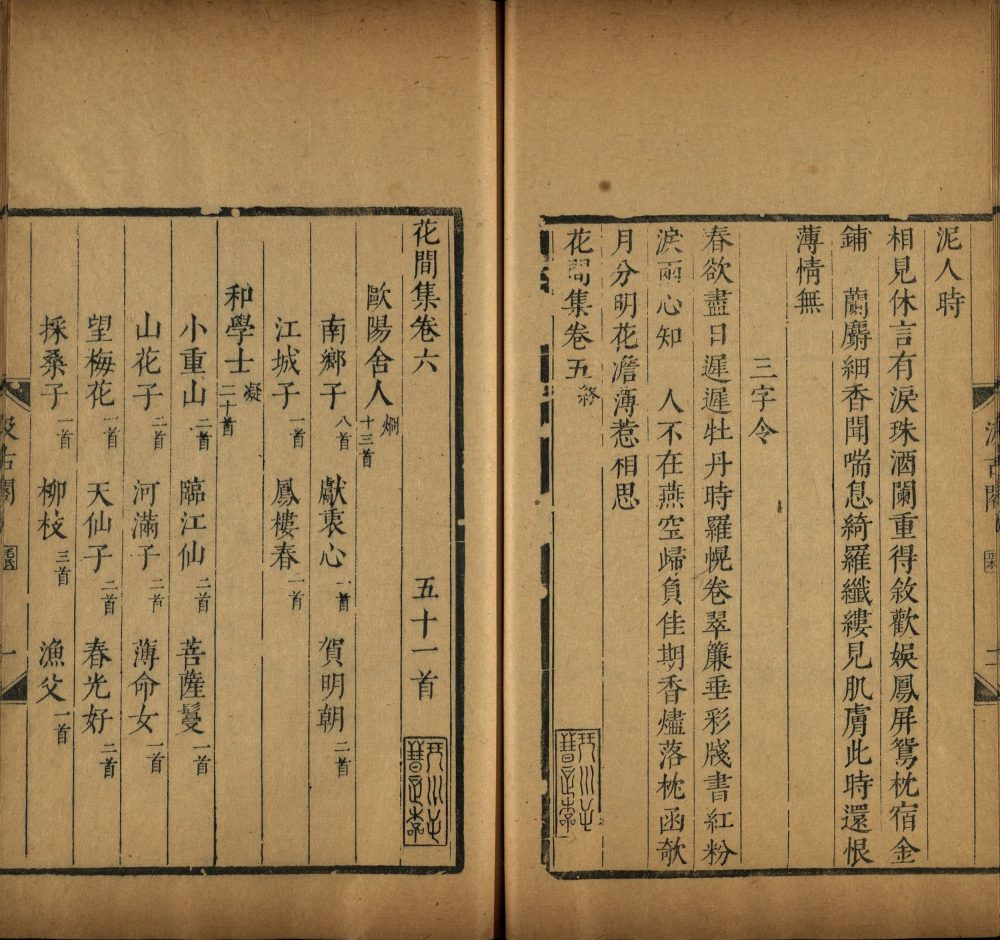 泥人時
相見休言有淚珠酒闌重得敘歡娛鳳屏鴛枕宿金
鋪　蘭麝細香聞喘息綺羅纖縷見肌膚此時還恨
薄情無
三字令
春欲盡日遲遲牡丹時羅幌卷翠簾垂彩牋書紅粉
淚兩心知　人不在燕空歸負佳期香燼落枕函欹
月分明花澹薄惹相思
花間集卷五 終
花間集卷六　五十一首
歐陽舍人 烱 十三首
南鄉子 八首　獻衷心 一首　賀明朝 二首
江城子 一首　鳳樓春 一首
和學士 凝 二十首
小重山 二首　臨江仙 二首　菩薩鬘 一首
山花子 二首　河滿子 二首　薄命女 一首
望梅花 一首　天仙子 二首　春光好 二首
採桑子 一首　柳枝 三首　漁父 一首
汲古閣
一